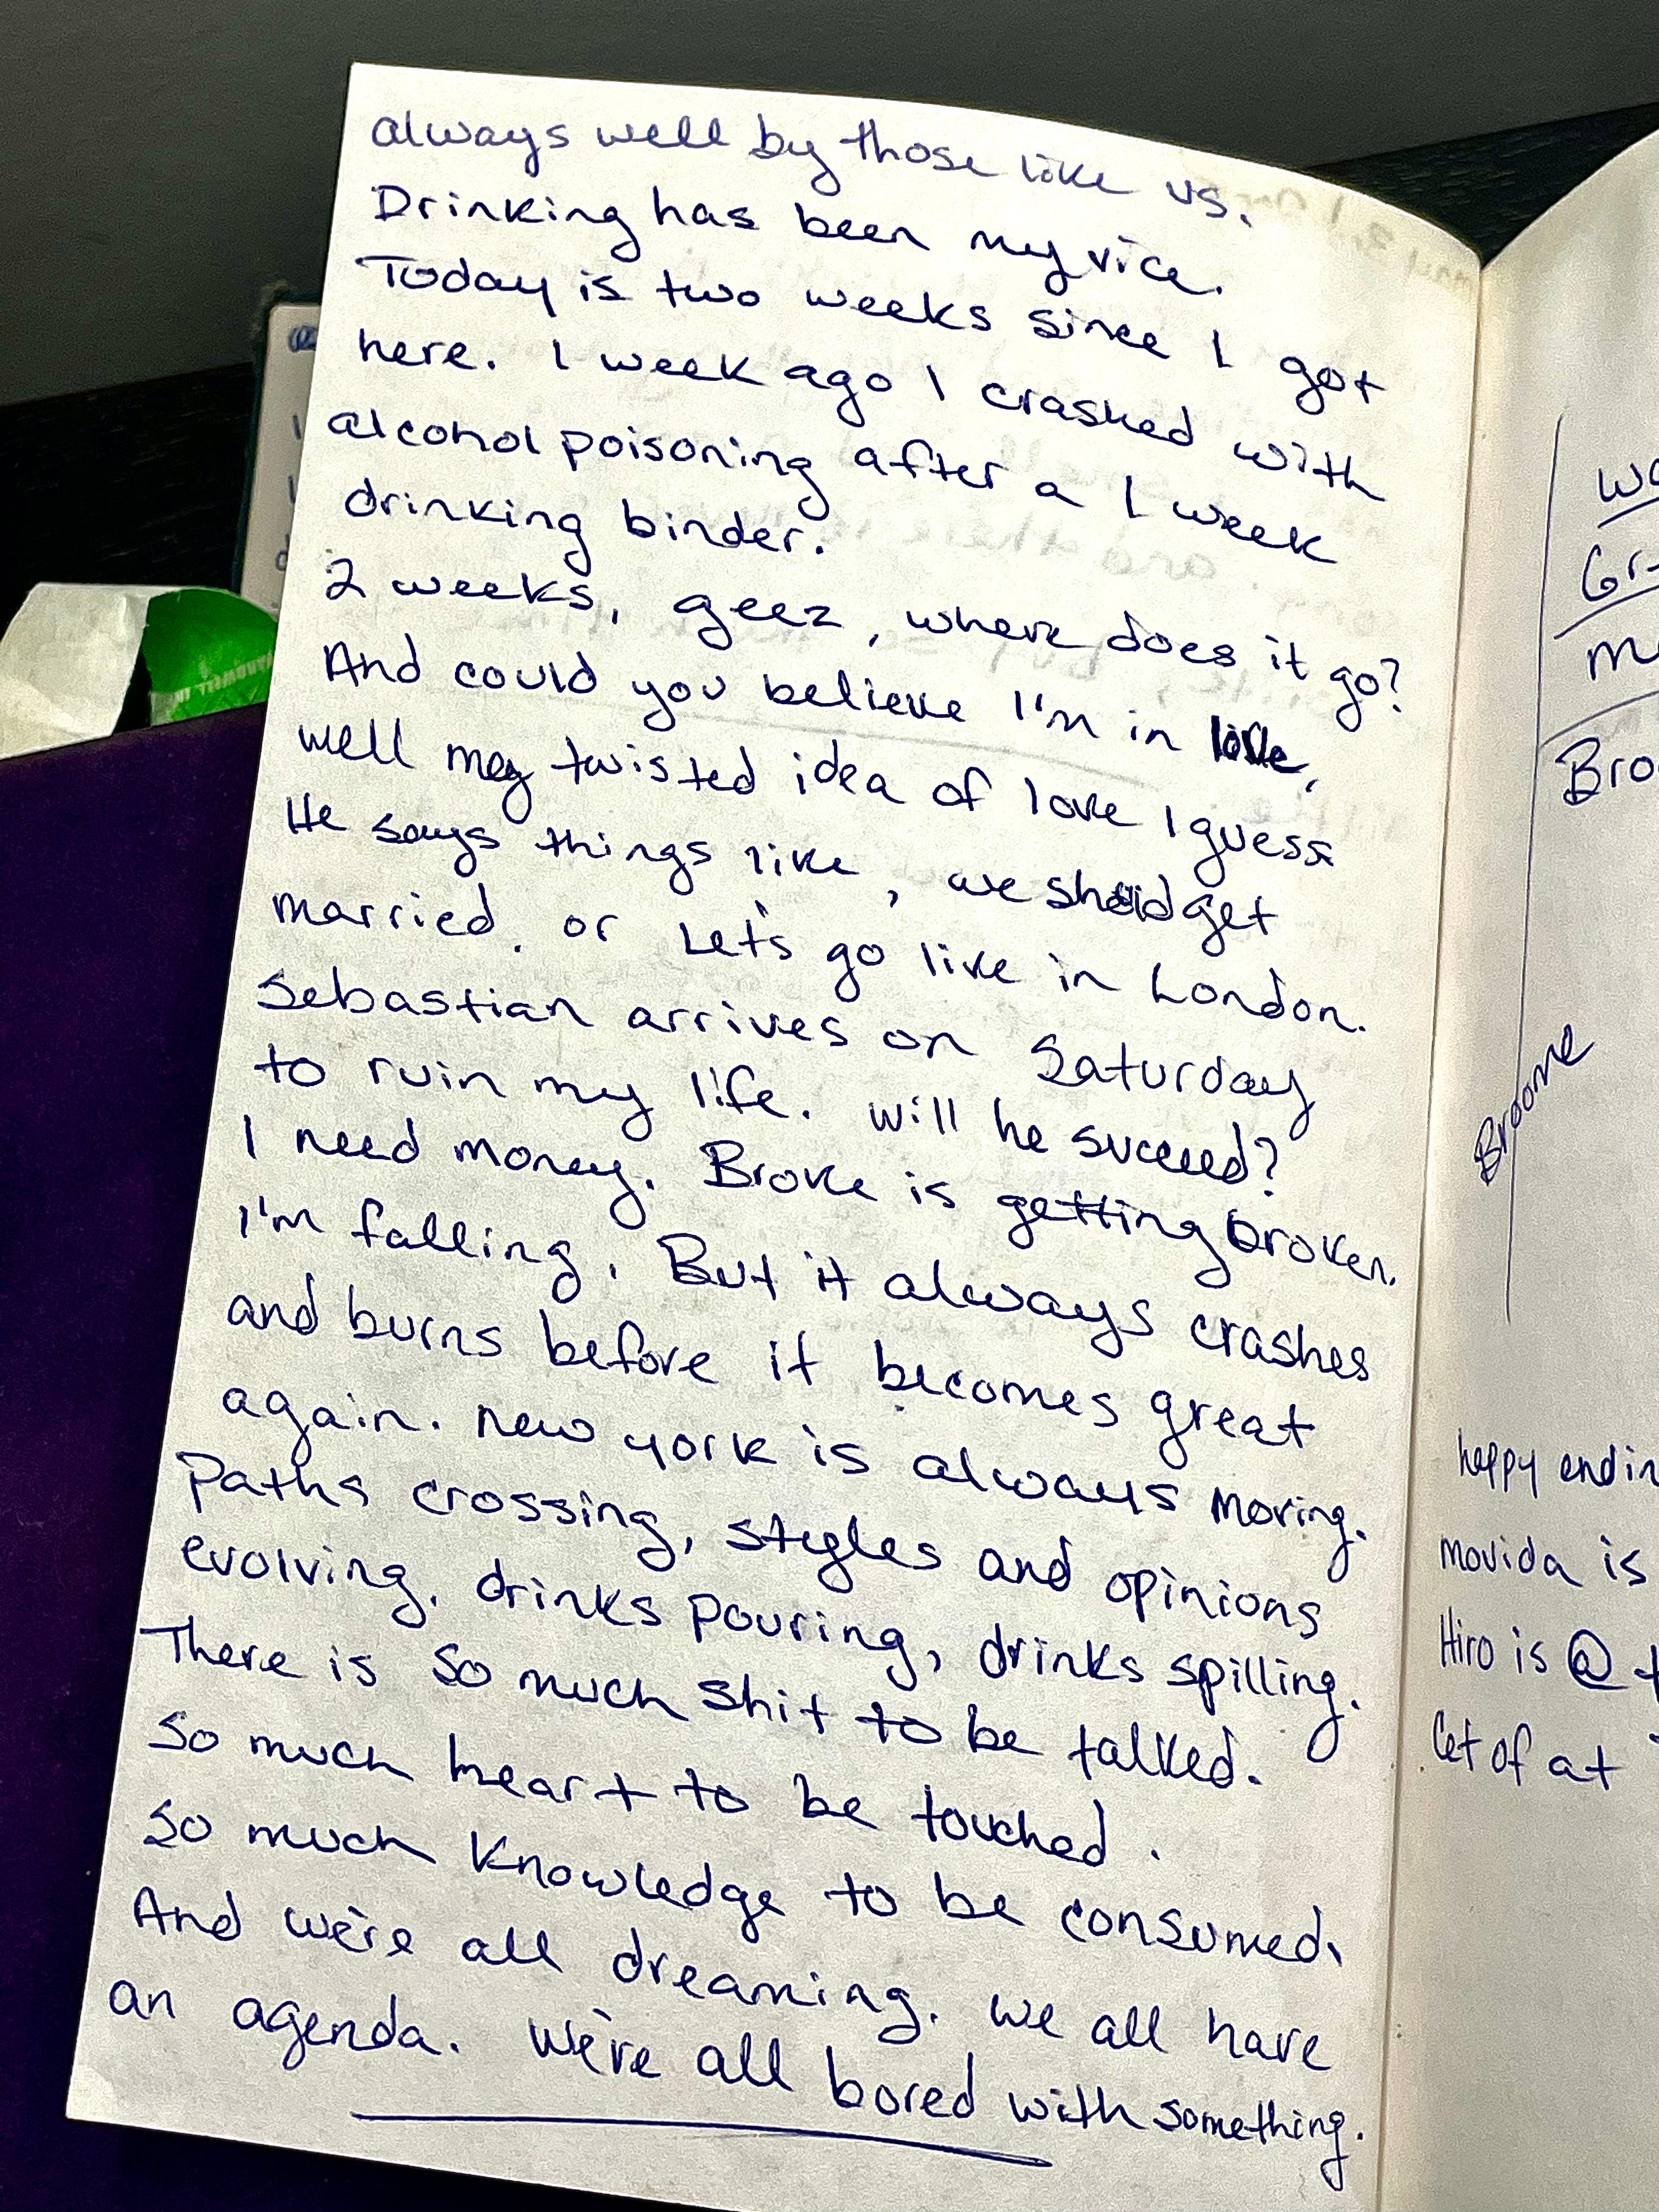 always well by those like us.
Drinking has been my vice.
Today is two weeks since I got
here. I week ago I crashed with
alcohol poisoning after a 1 week
drinking binder.
2 weeks, geez, where does it go?
And could you believe I'm in love,
well my twisted idea of love I guess
He says things like, we should get
married, or Let's go live in London.
Sebastian arrives on Saturday
to ruin my life. Will he succeed?
I need money. Broke is getting broken.
I'm falling. But it always crashes
and burns before it becomes great
again. New York is always moving.
Paths crossing, styles and opinions
evolving. drinks pouring, drinks spilling.
There is so much shit to be talked.
So much heart to be touched.
So much knowledge to be consumed.
And we're all dreaming. We all have
an agenda. We're all bored with something.
Broome
happy endin
movida is
Hiro is @
Cet of at